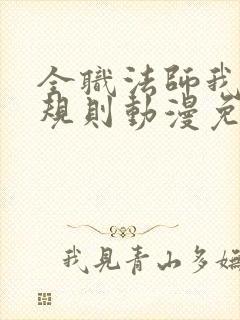 全職法師我
規則動漫免
我見青山多嫵